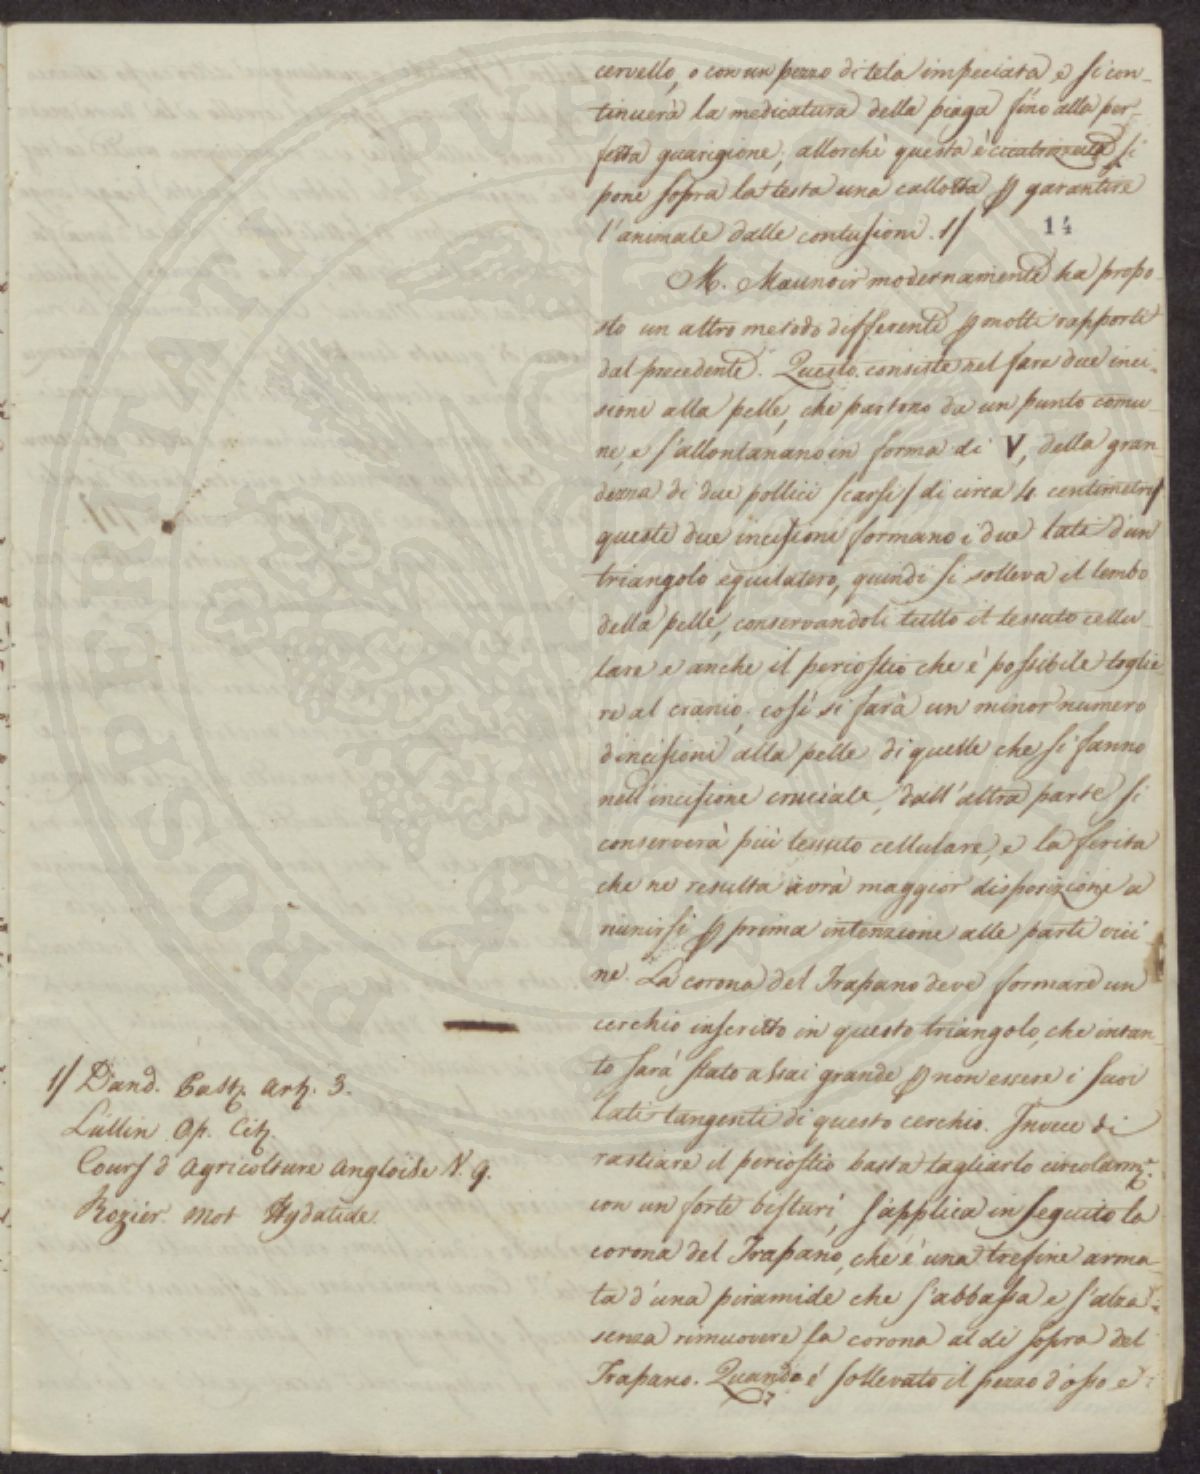 cervello, o con un pezzo di tela impeciata e si con-
tinuerà la medicatura della piaga fino alla per-
fetta guarigione; allorchè questa è cicatrizzata si
pone sopra la testa una callotta p garantire
l'animale dalle contusioni. 1/
14
M. Maunoir modernamente ha propo-
sto un altro metodo differente p molti rapporti
dal precedente. Questo consiste nel fare due inci-
sioni alla pelle, che partono da un punto comu-
ne, e s'allontanano in forma di V, della gran-
dezza di due pollici scarsi / di circa 4 centimetri /
queste due incisioni formano i due lati d'un
triangolo equilatero, quindi si solleva il lembo
della pelle, conservandoli tutto il tessuto cellu-
lare e anche il periostio che è possibile toglie
re al cranio; così si farà un minor numero
d'incisioni alla pelle di quelle che si fanno
nell'incisione cruciale, dall'altra parte si
conserverà più tessuto cellulare, e la ferita
che ne resulta avrà maggior disposizione a
riunirsi p prima intenzione alle parti vici-
ne. La corona del Trapano deve formare un
cerchio inscritto in questo triangolo, che intan-
to sarà stato assai grande p non essere i suoi
lati tangenti di questo cerchio. Invece di
rastiare il periostio basta tagliarlo circolarm.e
con un forte bisturi, s'applica in seguito la
corona del Trapano, che è una trefine arma-
ta d'una piramide che s'abbassa e s'alza
senza rimuovere la corona al di sopra del
Trapano. Quando è sollevato il pezzo d'osso e
1/ Dand. Art. 3.
Lullin Op. Cit.
Cours d Agricolture Angloise N. 9.
Rozier mot Hydatide.
PROSPERITATI PUBLICAE